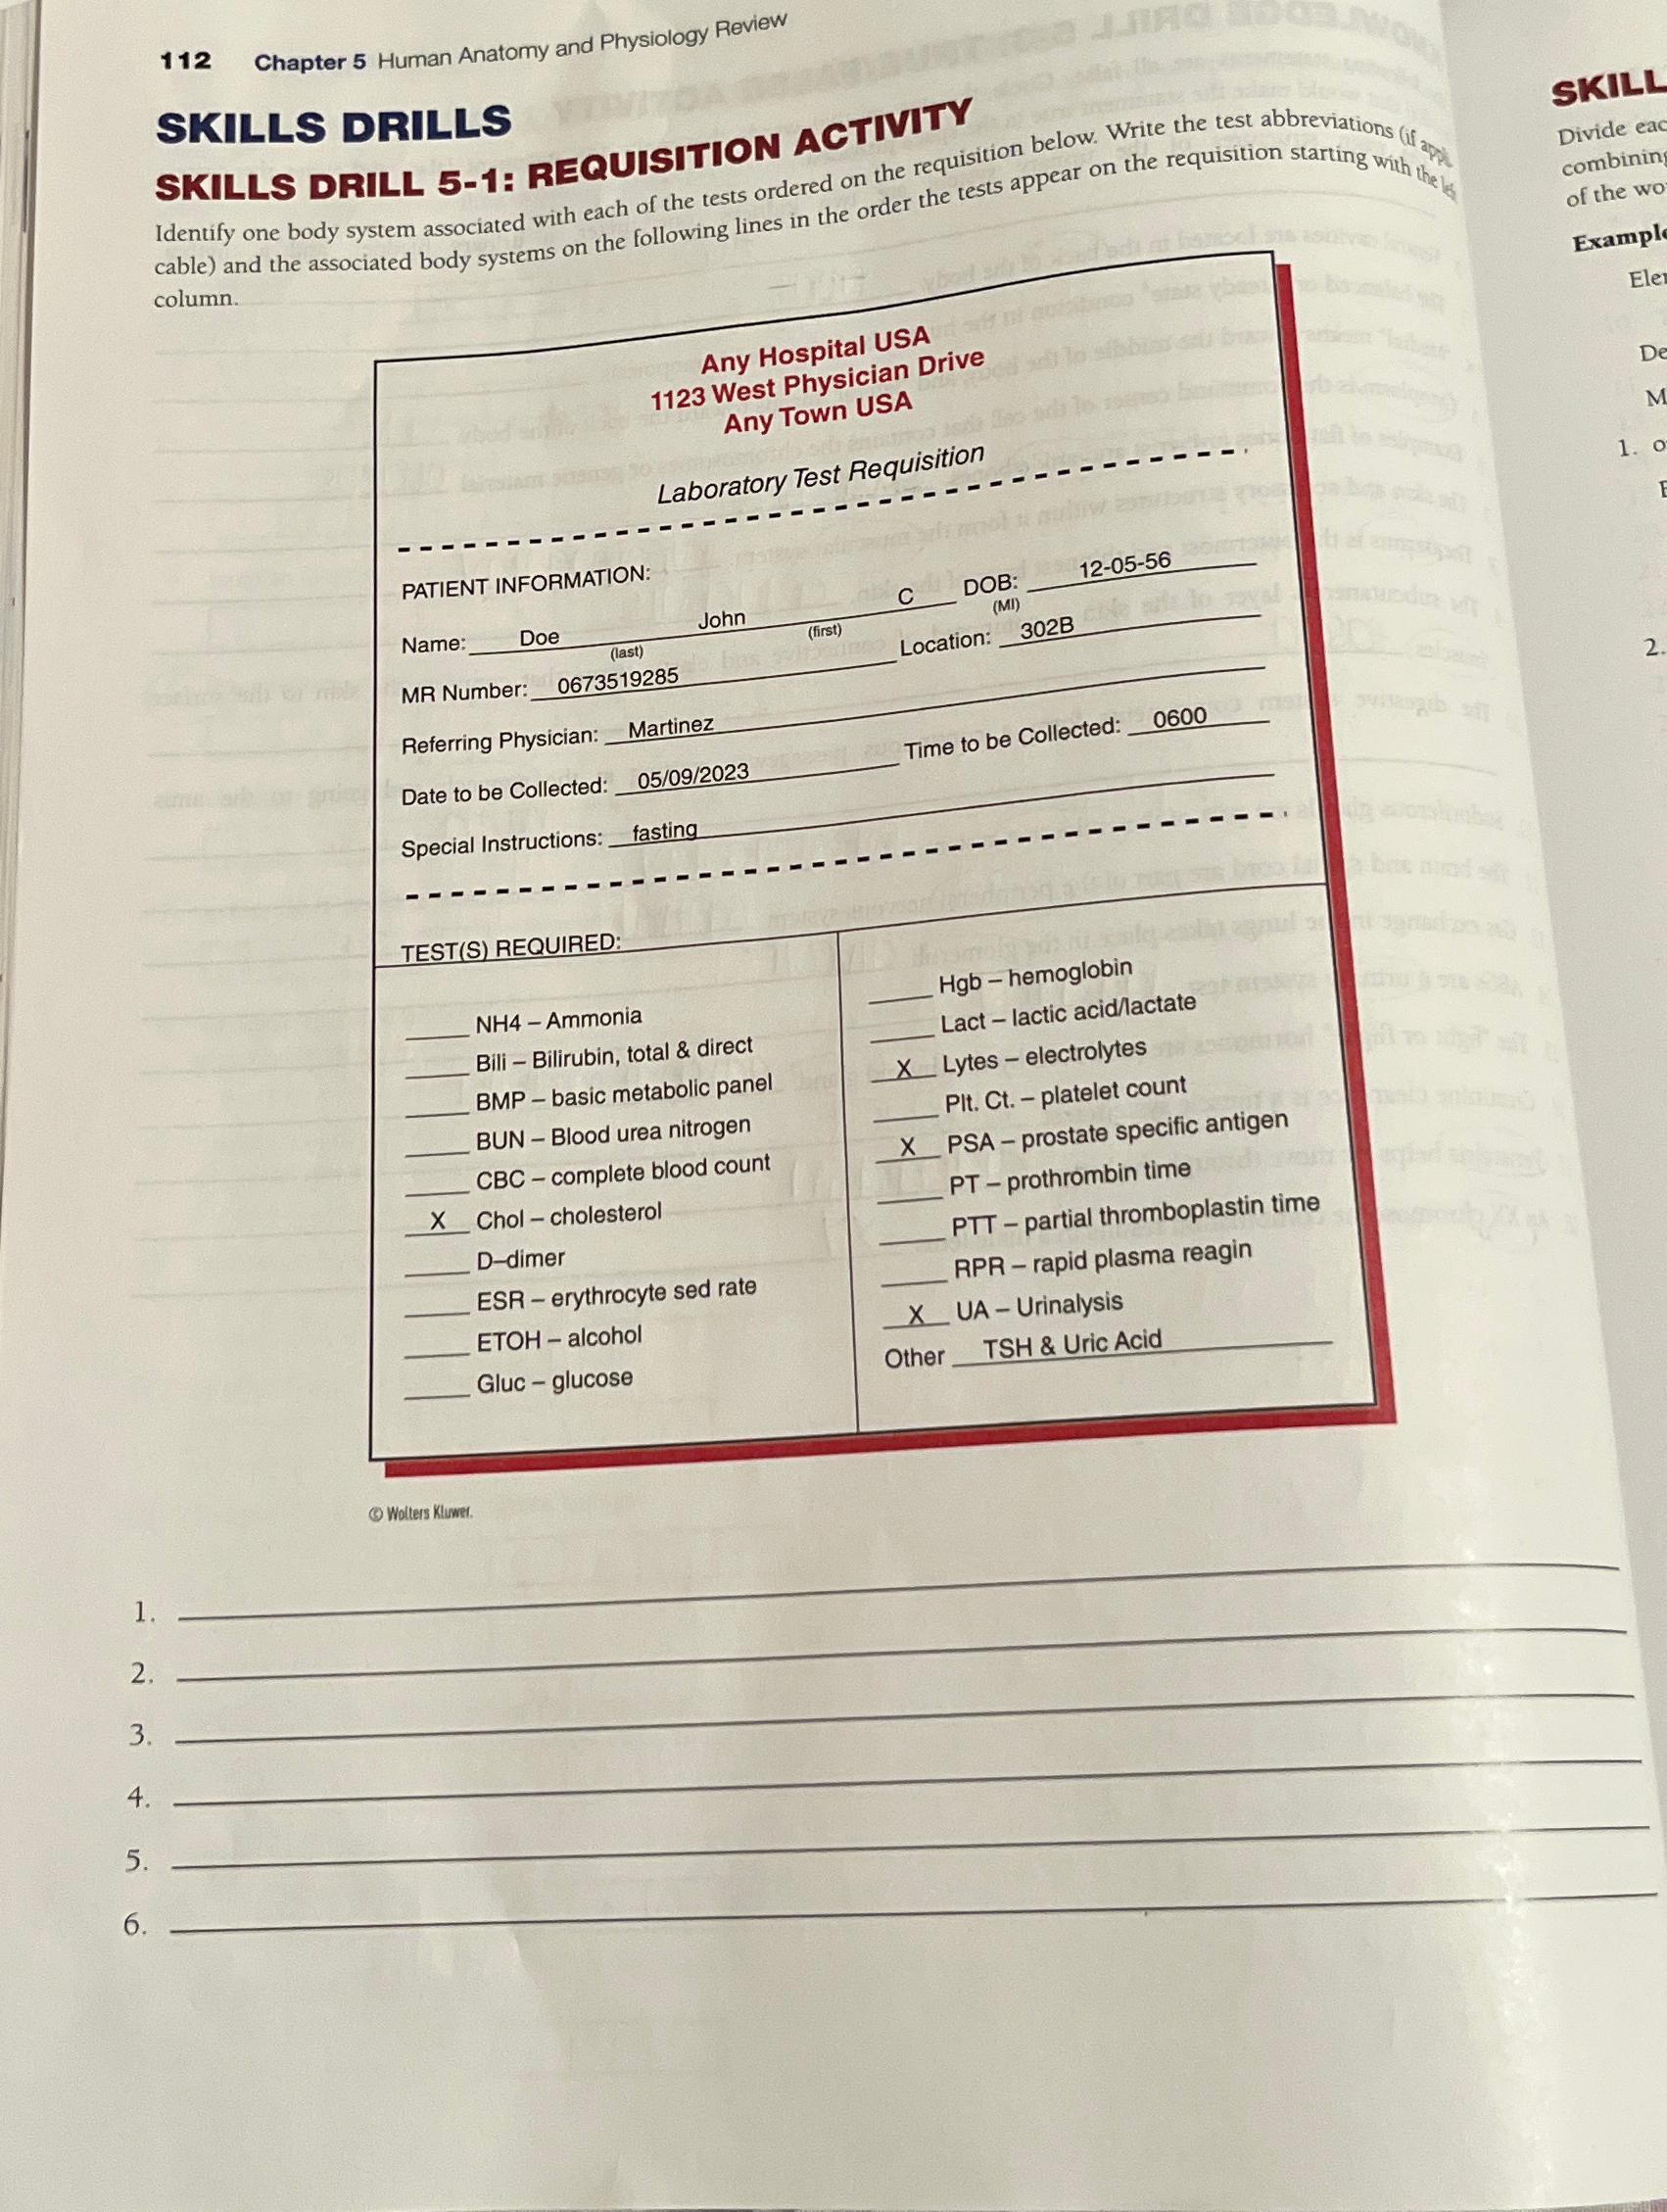 112 Chapter 5 Human Anatomy and Physiology Review
SKILLS DRILLS
SKILLS DRILL 5-1: REQUISITION ACTIVITY
Identify one body system associated with each of the tests ordered on the requisition below. Write the test abbreviations (if appli
cable) and the associated body systems on the following lines in the order the tests appear on the requisition starting with the
column.
Any Hospital USA
1123 West Physician Drive
Any Town USA
Laboratory Test Requisition
PATIENT INFORMATION:
Name: Doe John C DOB: 12-05-56
(last) (first) (MI)
MR Number: 0673519285 Location: 302B
Referring Physician: Martinez
Date to be Collected: 05/09/2023 Time to be Collected: 0600
Special Instructions: fasting
TEST(S) REQUIRED:
NH4 – Ammonia
Bili – Bilirubin, total & direct
BMP – basic metabolic panel
BUN – Blood urea nitrogen
CBC – complete blood count
X Chol – cholesterol
D–dimer
ESR – erythrocyte sed rate
ETOH – alcohol
Gluc – glucose
Hgb – hemoglobin
Lact – lactic acid/lactate
X Lytes – electrolytes
Plt. Ct. – platelet count
X PSA – prostate specific antigen
PT – prothrombin time
PTT – partial thromboplastin time
RPR – rapid plasma reagin
X UA – Urinalysis
Other TSH & Uric Acid
© Wolters Kluwer.
1.
2.
3.
4.
5.
6.
SKILL
Divide eac
combining
of the wo
Example
Eler
De
M
1. o
2.